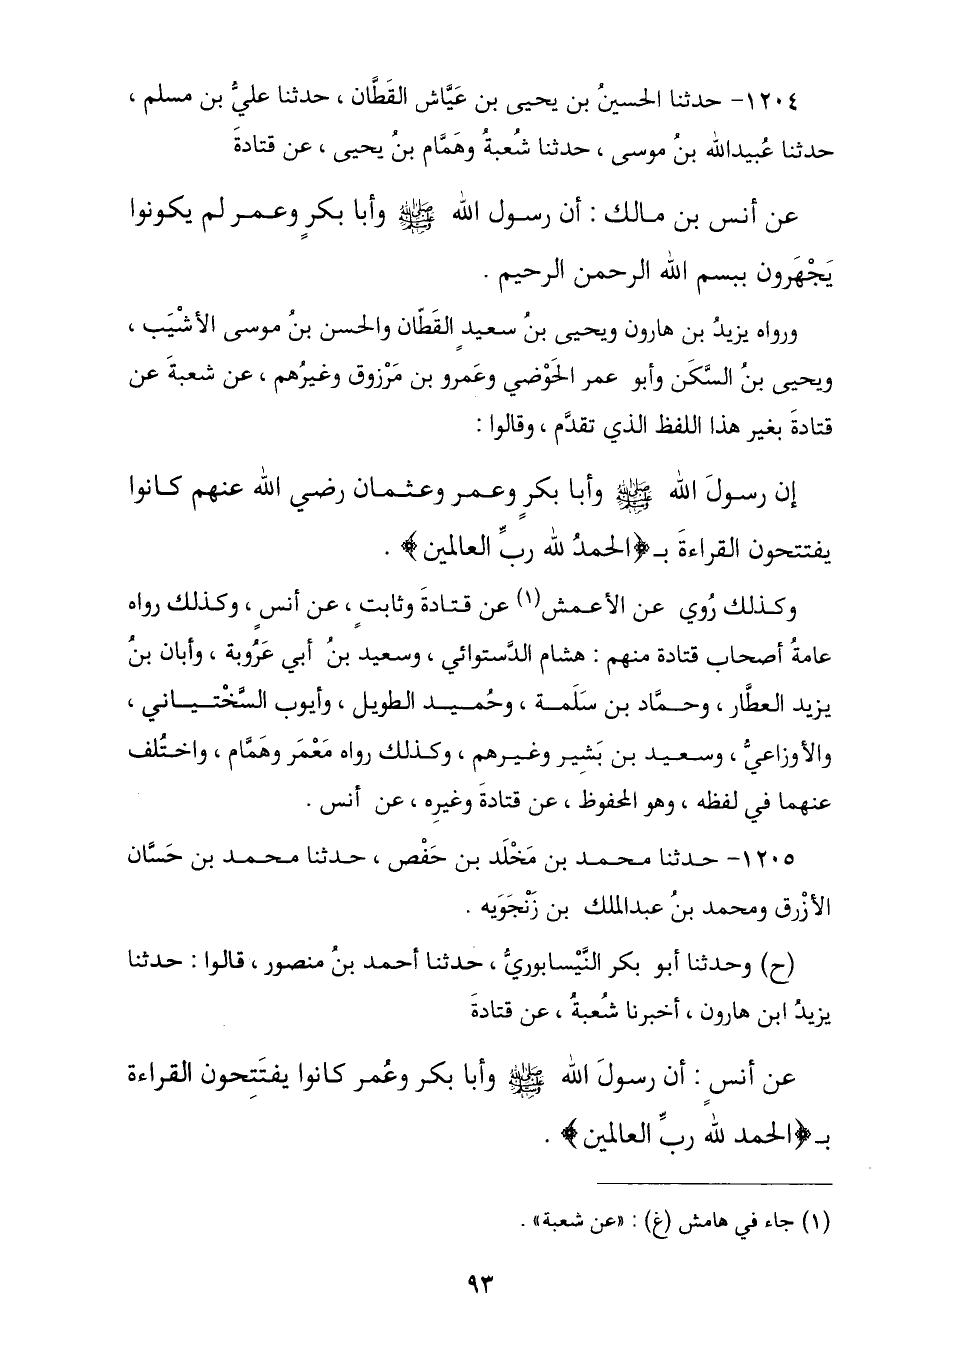 ١٢٠٤- حدثنا الحسينُ بن يحيى بن عَيَّاش القَطَّان ، حدثنا عليُّ بن مسلم ،
حدثنا عُبيدالله بنُ موسى ، حدثنا شُعبةُ وهَمَّام بنُ يحيى ، عن قتادةَ
عن أنس بن مالك : أن رسول الله ﷺ وأبا بكرٍ وعمر لم يكونوا
يَجْهَرون ببسم الله الرحمن الرحيم .
ورواه يزيدُ بن هارون ويحيى بنُ سعيدٍ القَطَّان والحسن بنُ موسى الأشْيَب ،
ويحيى بنُ السَّكَن وأبو عمر الحَوْضي وعَمرو بن مَرْزوق وغيرُهم ، عن شعبةَ عن
قتادةَ بغير هذا اللفظ الذي تقدَّم ، وقالوا :
إن رسولَ الله ﷺ وأبا بكرٍ وعمر وعثمان رضي الله عنهم كانوا
يفتتحون القراءةَ بـ﴿الحمدُ لله ربِّ العالمين﴾ .
وكذلك رُوي عن الأعمش(١) عن قتادةَ وثابتٍ ، عن أنسٍ ، وكذلك رواه
عامةُ أصحاب قتادة منهم : هشام الدَّستوائي ، وسعيد بنُ أبي عَرُوبة ، وأبان بنُ
يزيد العطَّار ، وحمَّاد بن سَلَمة ، وحُميد الطويل ، وأيوب السَّخْتياني ،
والأوزاعيُّ ، وسعيد بن بَشِير وغيرهم ، وكذلك رواه مَعْمَر وهَمَّام ، واختُلف
عنهما في لفظه ، وهو المحفوظ ، عن قتادةَ وغيرِه ، عن أنس .
١٢٠٥- حدثنا محمد بن مَخْلَد بن حَفْص ، حدثنا محمد بن حَسَّان
الأزْرق ومحمد بنُ عبدالملك بن زَنْجَوَيه .
(ح) وحدثنا أبو بكر النَّيْسابوريُّ ، حدثنا أحمد بنُ منصور ، قالوا : حدثنا
يزيدُ ابن هارون ، أخبرنا شُعبةُ ، عن قتادةَ
عن أنسٍ : أن رسولَ الله ﷺ وأبا بكر وعُمر كانوا يفتَتِحون القراءة
بـ﴿الحمد لله ربِّ العالمين﴾ .
(١) جاء في هامش (غ) : «عن شعبة» .
٩٣